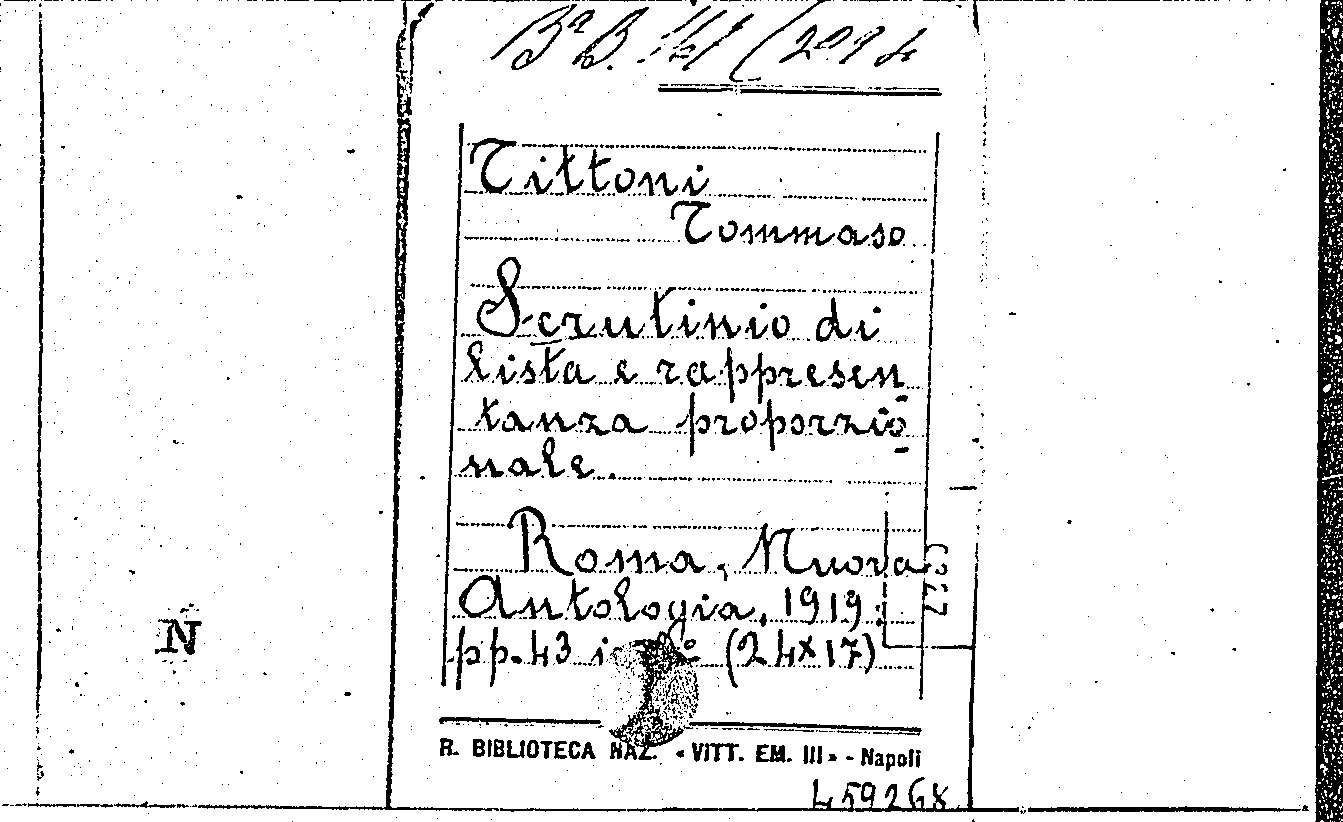 Bª B. (209 4
Tittoni
Tommaso
Scrutinio di
lista e rappresen
tanza proporzio
nale.
Roma, Nuova
Antologia, 1919;
pp. 43 8º (24x17)
N
R. BIBLIOTECA NAZ. « VITT. EM. III » - Napoli
459268